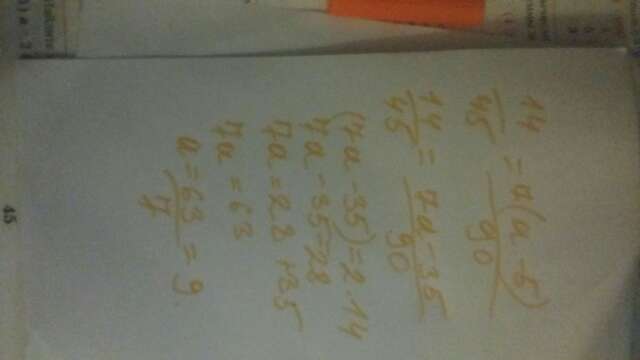 14/45 = 7(a-5)/90
14/45 = 7a-35/90
(7a-35)=2·14
7a-35=28
7a=28+35
7a=63
a=63/7=9.
45